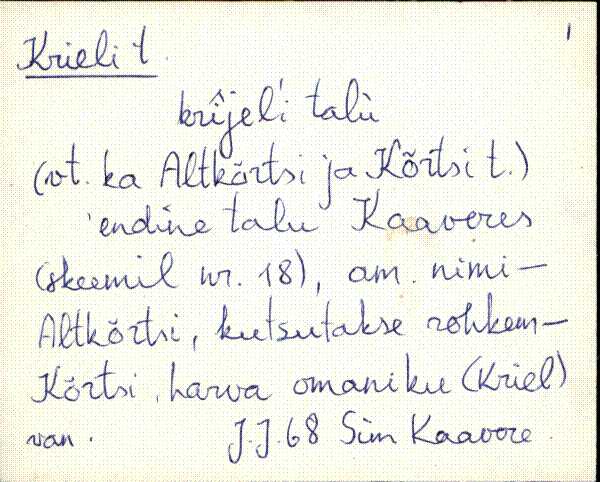 Krieli t. 1
krîjel'i talù
(vt. ka Altkõrtsi ja Kõrtsi t.)
endine talu Kaaveres
(skeemil nr. 18), am. nimi -
Altkõrtsi, kutsutakse rohkem -
Kõrtsi, harva omaniku (Kriel)
van. J.J. 68 Sim Kaavere.